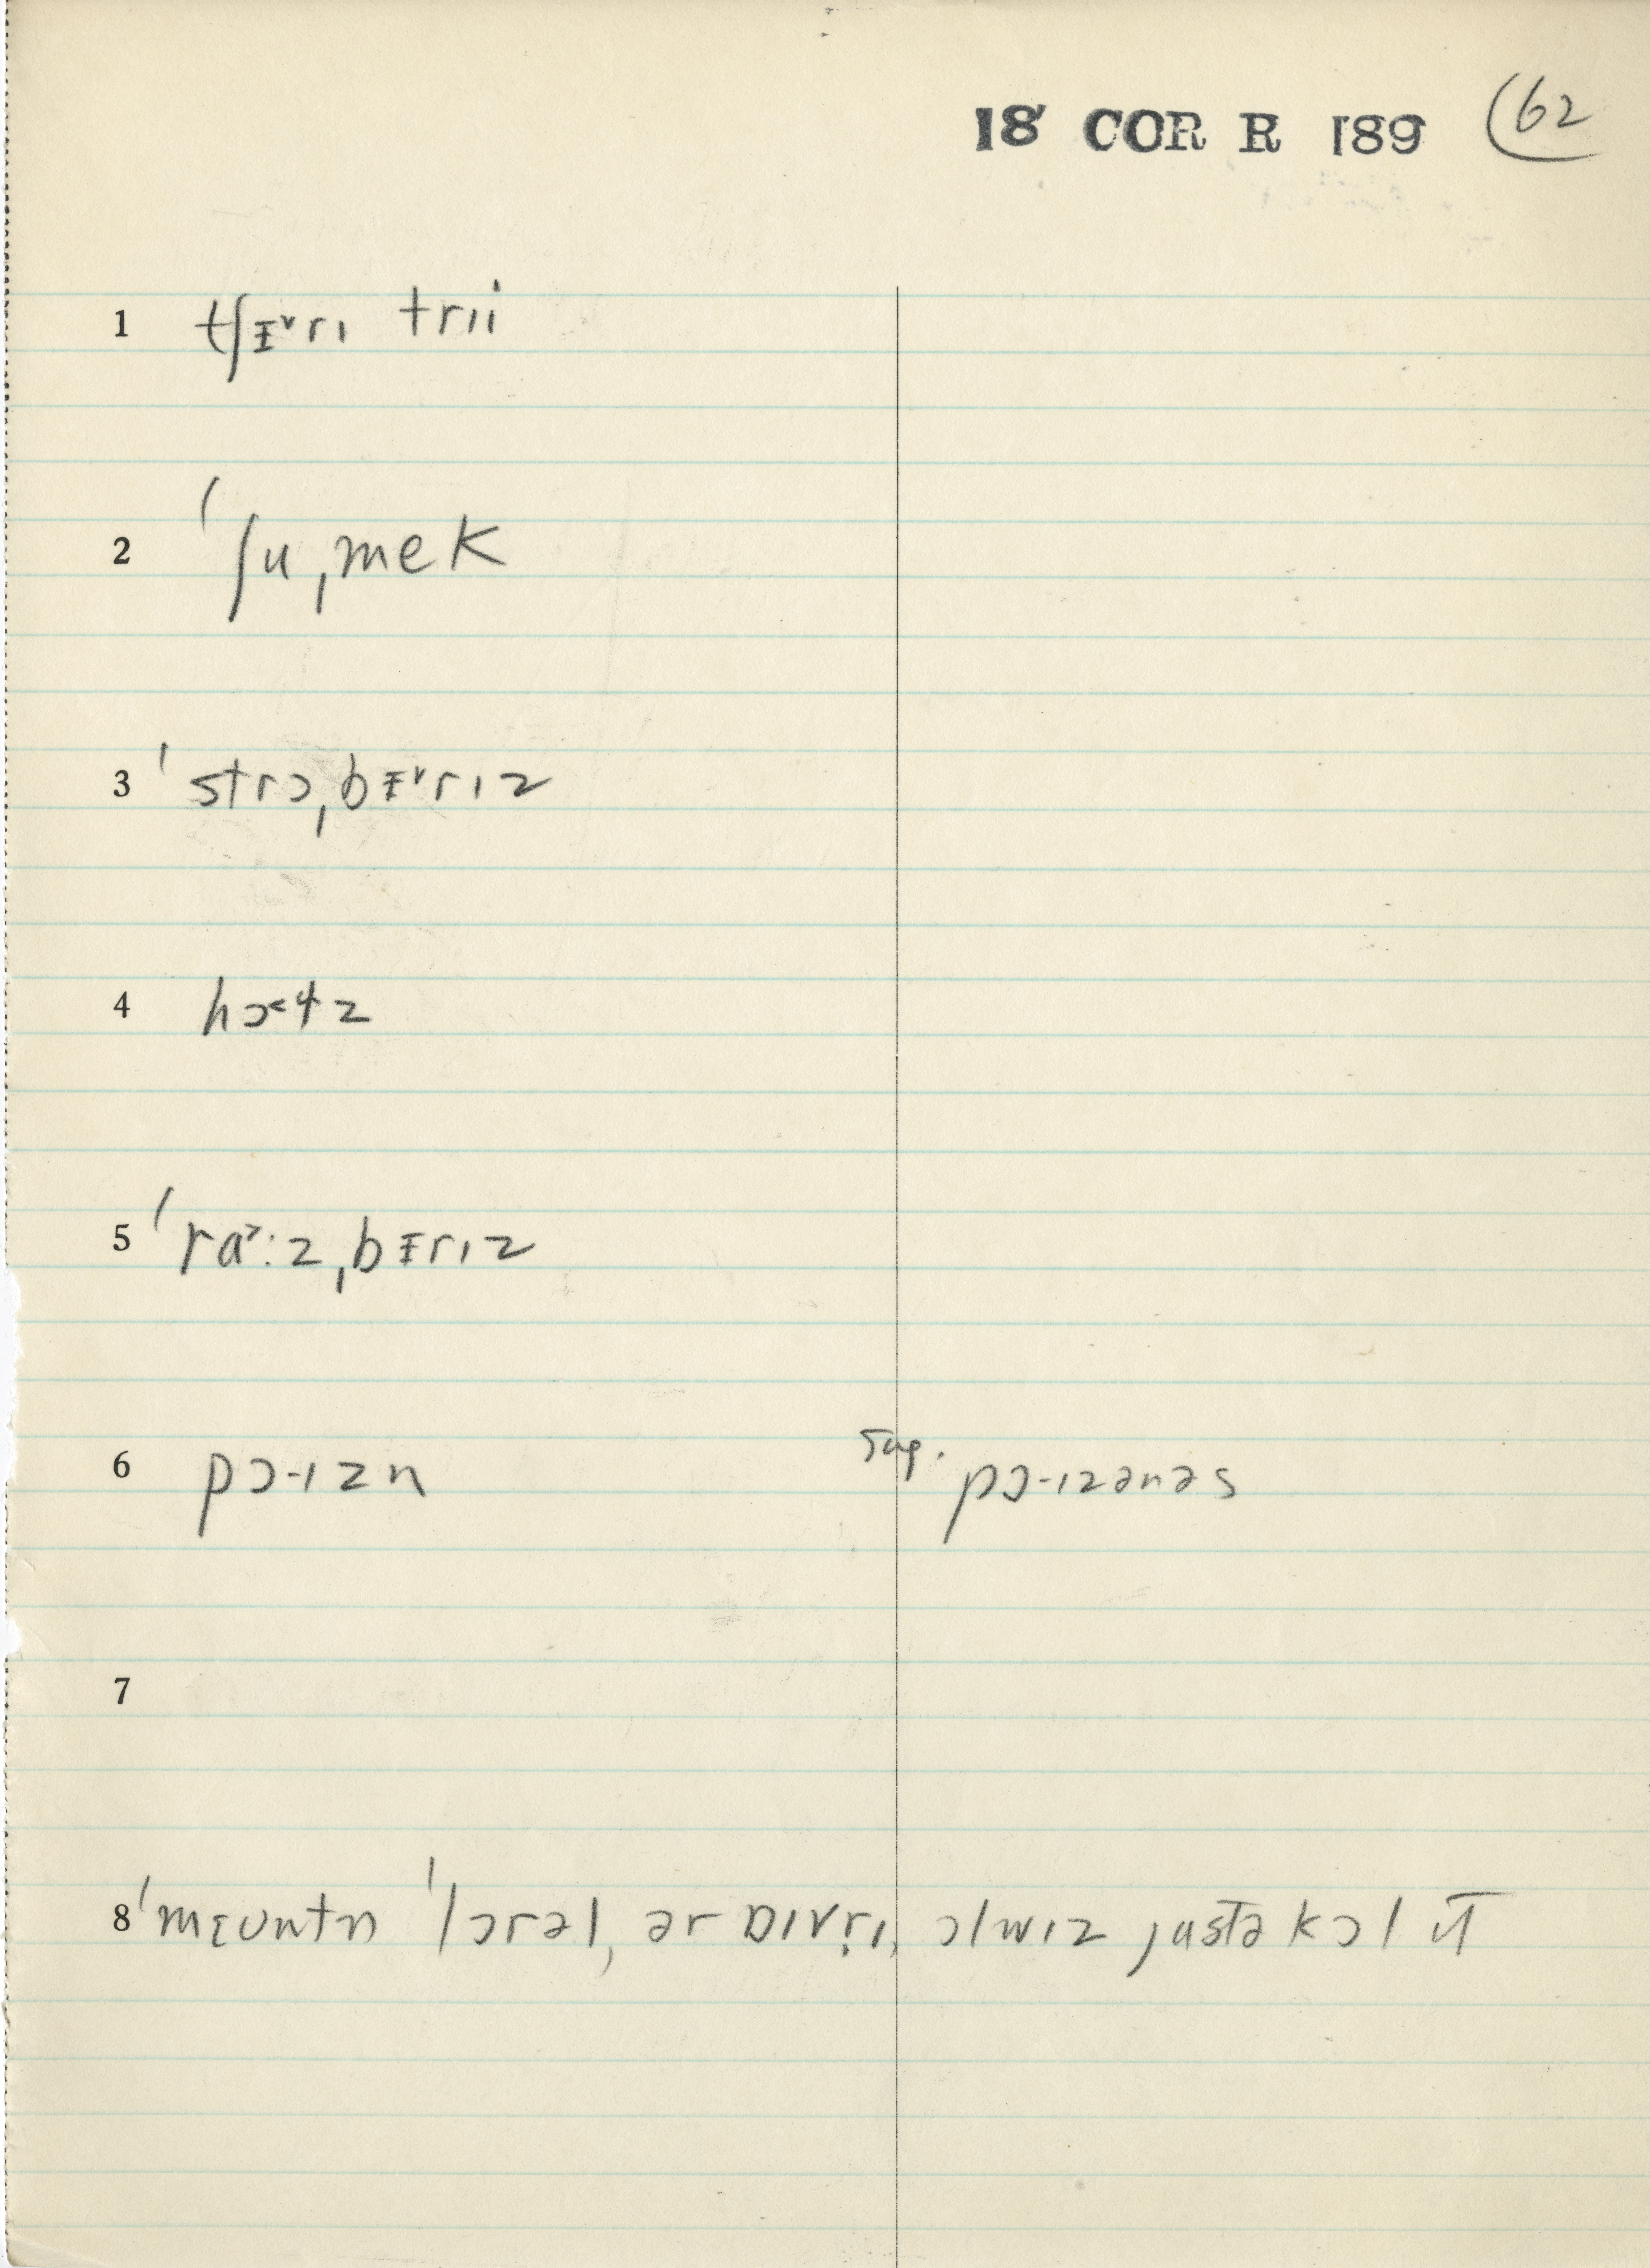 18 COR R 189 (62
1 tʃɪ̵˅rɪ trii
2 ˈʃuˌmek
3 ˈstrɔˌbɪ̵˅rɪz
4 hɔ˂ɬz
5 ˈra˃:zˌbɪ̵rɪz
6 pɔ-ɪzn sug. pɔ-ɪzənəs
7
8 ˈmɛuntn ˈlɔrəl, ər ɒɪvr̩ɪ, ɔlwɪz justə kɔl ɪt